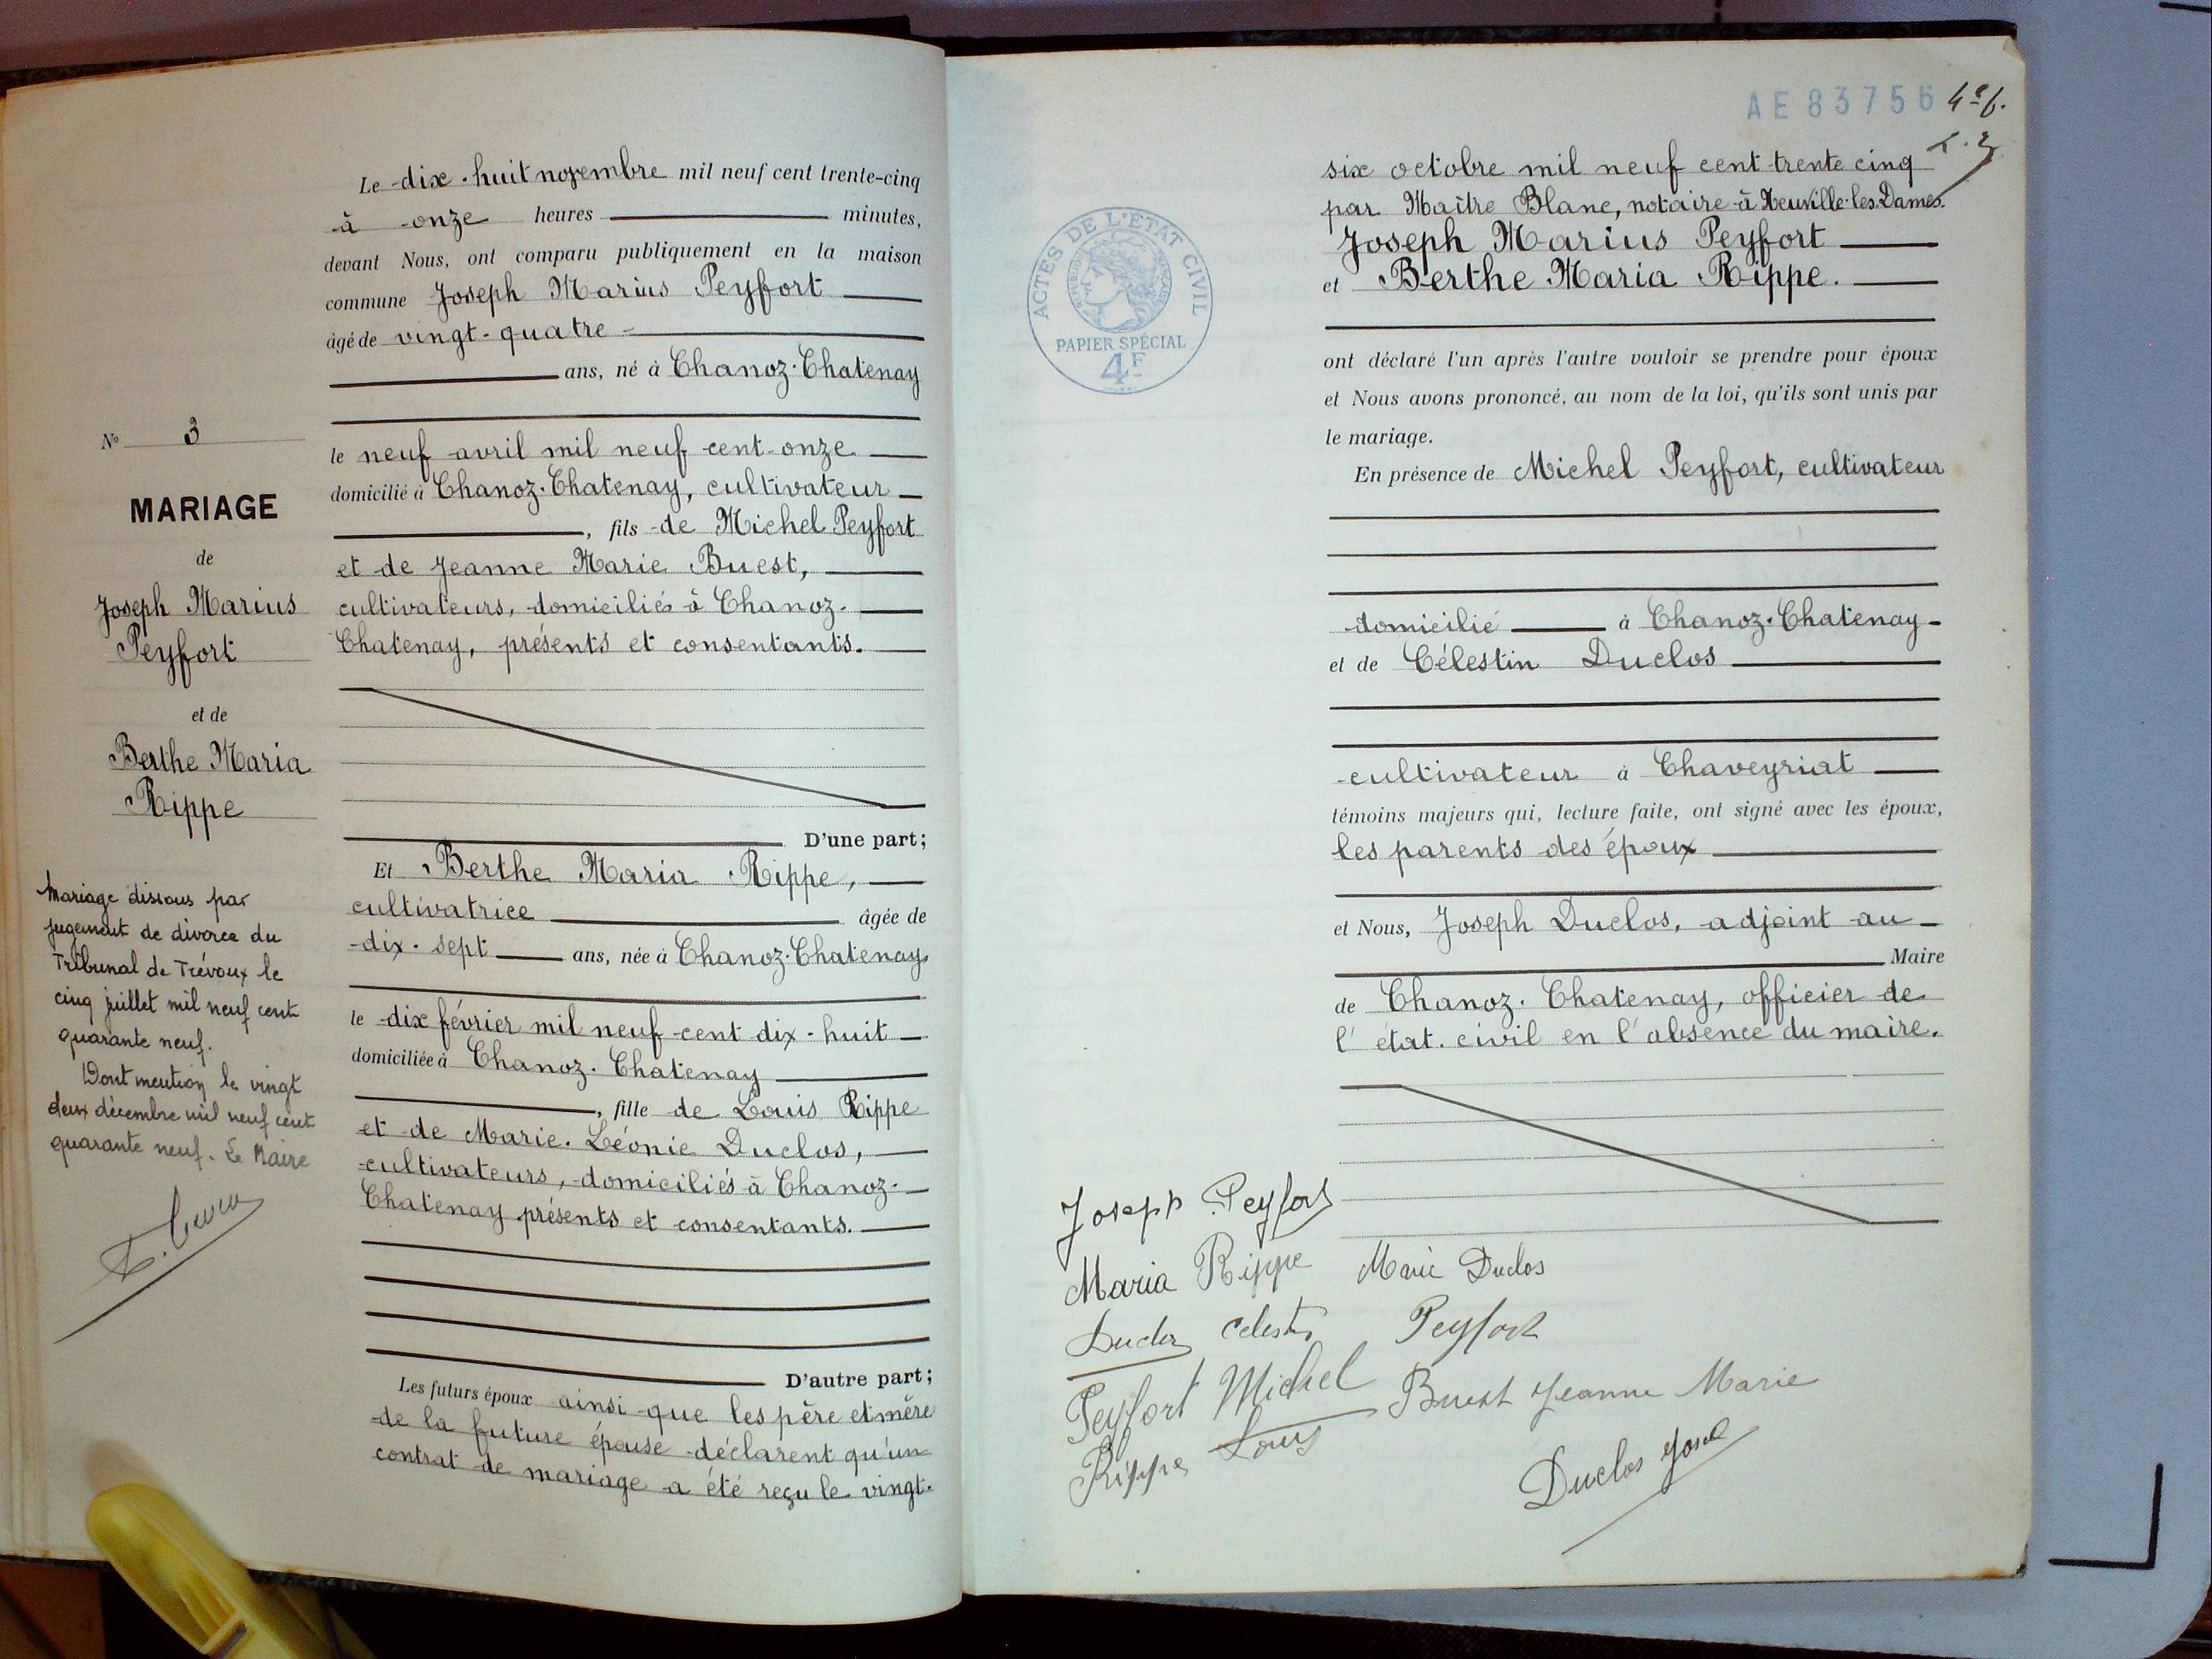 N° 3
MARIAGE
de
Joseph Marius
Peyfort
et de
Berthe Maria
Rippe
Mariage dissous par
jugement de divorce du
Tribunal de Trévoux le
cinq juillet mil neuf cent
quarante neuf.
Dont mention le vingt
deux décembre mil neuf cent
quarante neuf. Le Maire
Le dix-huit novembre mil neuf cent trente-cinq
à onze heures minutes,
devant Nous, ont comparu publiquement en la maison
commune Joseph Marius Peyfort
âgé de vingt-quatre
ans, né à Chanoz-Chatenay
le neuf avril mil neuf cent onze
domicilié à Chanoz-Chatenay, cultivateur
, fils de Michel Peyfort
et de Jeanne Marie Buest,
cultivateurs, domiciliés à Chanoz-
Chatenay, présents et consentants.
D'une part;
Et Berthe Maria Rippe,
cultivatrice âgée de
dix-sept ans, née à Chanoz-Chatenay
le dix février mil neuf cent dix-huit
domiciliée à Chanoz-Chatenay
, fille de Louis Rippe
et de Marie-Léonie Duclos,
cultivateurs, domiciliés à Chanoz-
Chatenay présents et consentants.
D'autre part;
Les futurs époux ainsi que les père et mère
de la future épouse déclarent qu'un
contrat de mariage a été reçu le vingt-
AE 83756 4e f.
ACTES DE L'ÉTAT CIVIL
PAPIER SPÉCIAL
4F
six octobre mil neuf cent trente cinq
par Maître Blanc, notaire à Neuville-les-Dames.
Joseph Marius Peyfort
et Berthe Maria Rippe.
ont déclaré l'un après l'autre vouloir se prendre pour époux
et Nous avons prononcé, au nom de la loi, qu'ils sont unis par
le mariage.
En présence de Michel Peyfort, cultivateur
domicilié à Chanoz-Chatenay
et de Célestin Duclos
cultivateur à Chaveyriat
témoins majeurs qui, lecture faite, ont signé avec les époux,
les parents des époux
et Nous, Joseph Duclos, adjoint au
Maire
de Chanoz-Chatenay, officier de
l'état-civil en l'absence du maire.
Joseph Peyfort
Maria Rippe Marie Duclos
Duclos Celestin Peyfort
Peyfort Michel Buest Jeanne Marie
Rippe Louis
Duclos José